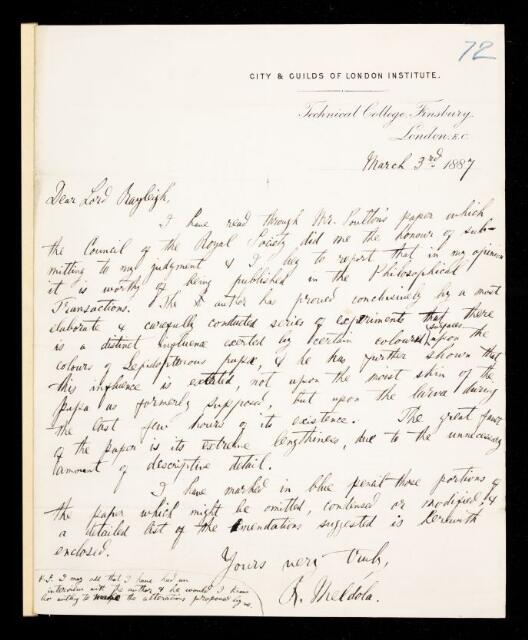 72
CITY & GUILDS OF LONDON INSTITUTE.
Technical College, Finsbury,
London. E.C.
March 3rd 1887
Dear Lord Rayleigh,
I have read through Mr. Poulton's paper which
the Council of the Royal Society did me the honour of sub-
mitting to my judgment & I beg to report that in my opinion
it is worthy of being published in the Philosophical
Transactions. The author has proved conclusively by a most
elaborate & carefully conducted series of experiments that there
is a distinct influence exerted by certain coloured surfaces upon the
colours of Lepidopterous pupæ, & he has further shown that
this influence is exerted, not upon the moist skin of the
pupa as formerly supposed, but upon the larva during
the last few hours of its existence. The great fault
of the paper is its extreme lengthiness, due to the unnecessary
amount of descriptive detail.
I have marked in blue pencil those portions of
the paper which might be omitted, condensed or modified, &
a detailed list of the emendations suggested is herewith
enclosed.
Yours very truly,
R. Meldola.
I may add that I have had an
interview with the author & he would I know
be willing to make the alterations proposed by me.